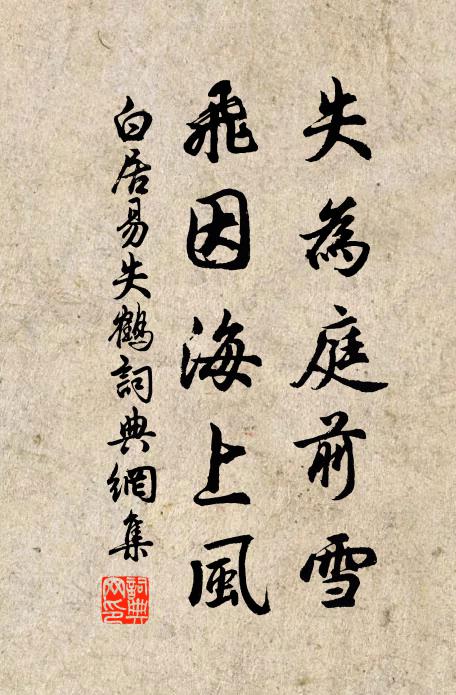 失為庭前雪
飛因海上風
白居易失鶴詞典網集
詞典
网印